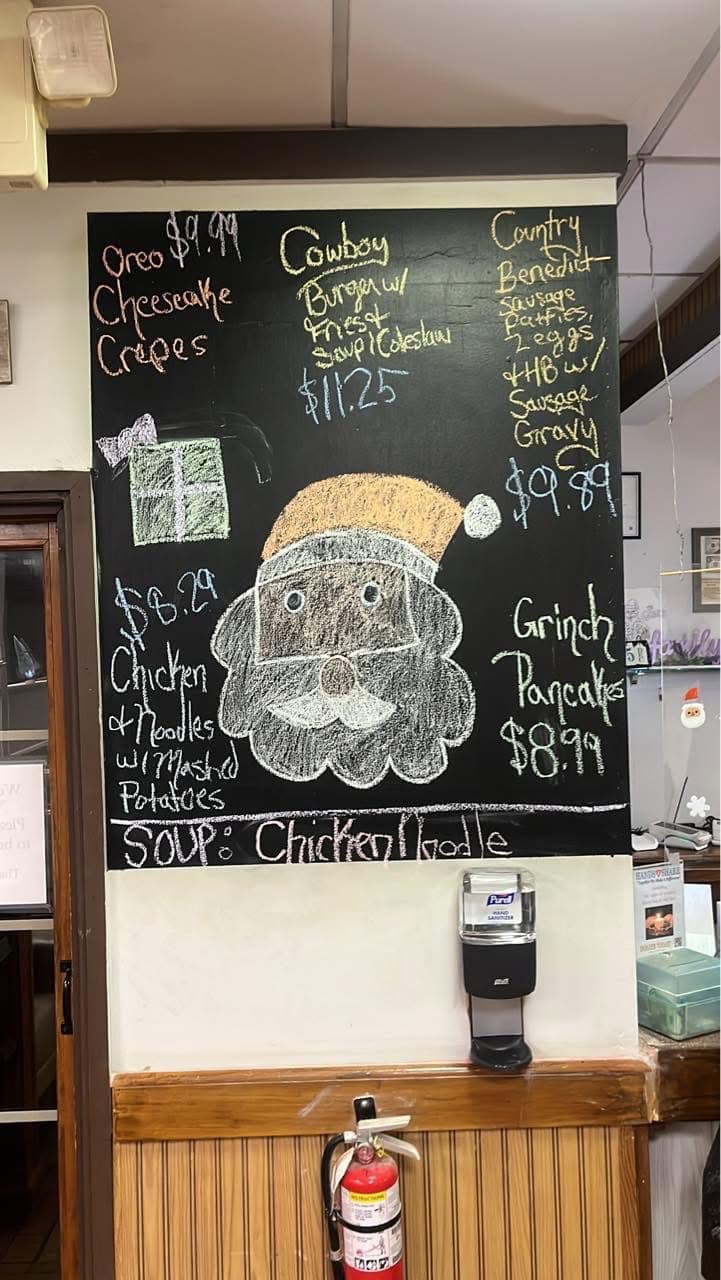 $9.99
Oreo
Cheesecake
Crepes
Cowboy
Burger w/
Fries +
Soup/Coleslaw
$11.25
Country
Benedict
Sausage
Patties,
2 eggs
+ HB w/
Sausage
Gravy
$9.89
$8.29
Chicken
+ Noodles
w/ Mashed
Potatoes
Grinch
Pancakes
$8.99
SOUP: Chicken Noodle
Purell
HAND
SANITIZER
HANDS SHARE
DONATE TODAY!
INSTRUCTIONS